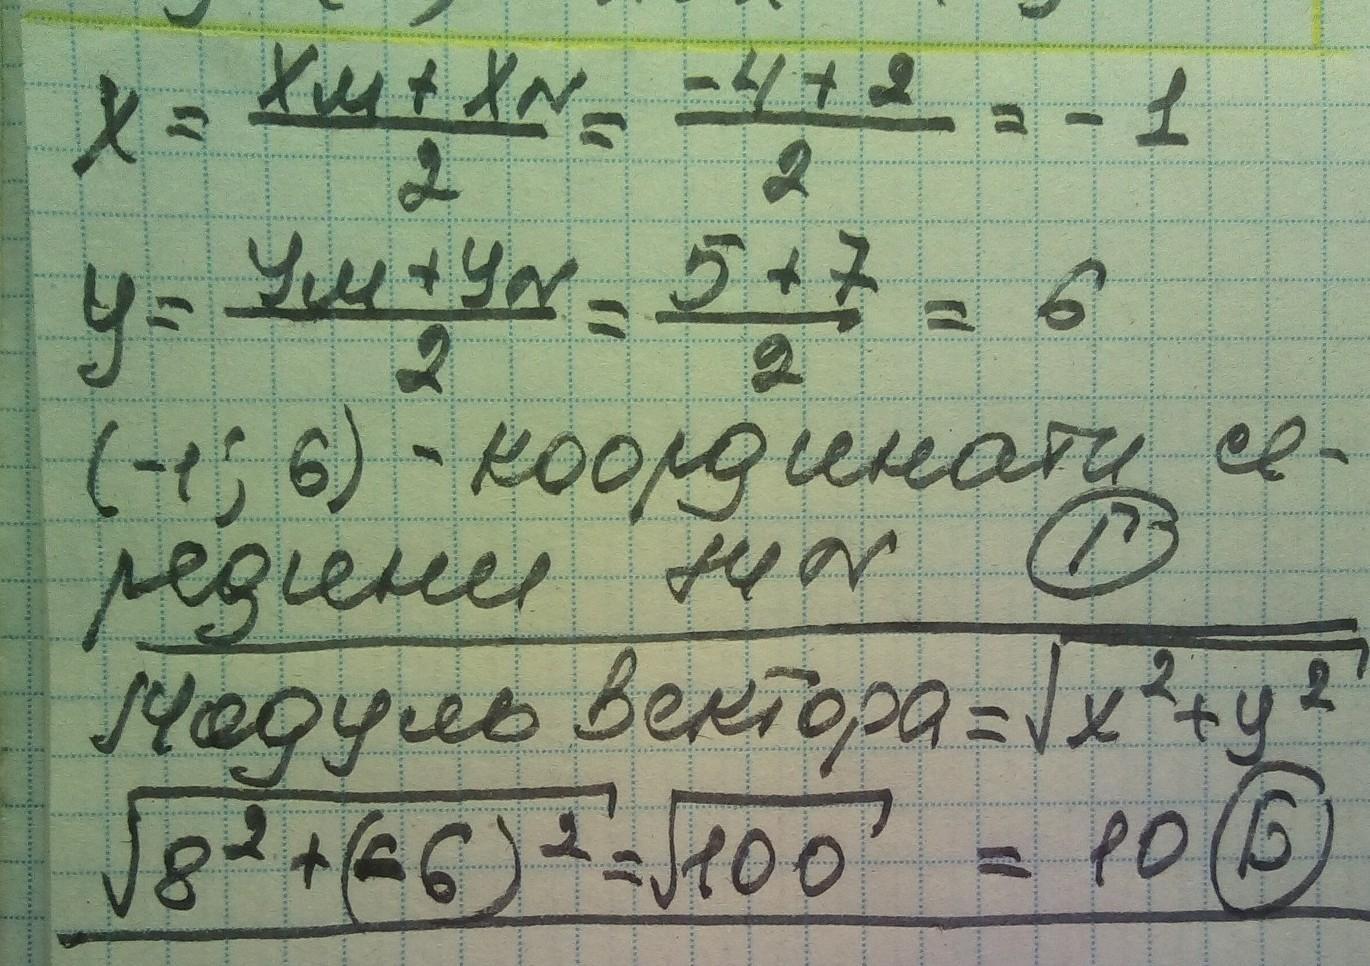 x = (xм + xN)/2 = (-4 + 2)/2 = - 1
y = (yм + yN)/2 = (5 + 7)/2 = 6
(-1; 6) - координати се-
редини MN Г
Модуль вектора = √(x² + y²)
√(8² + (-6)²) = √100 = 10 Б